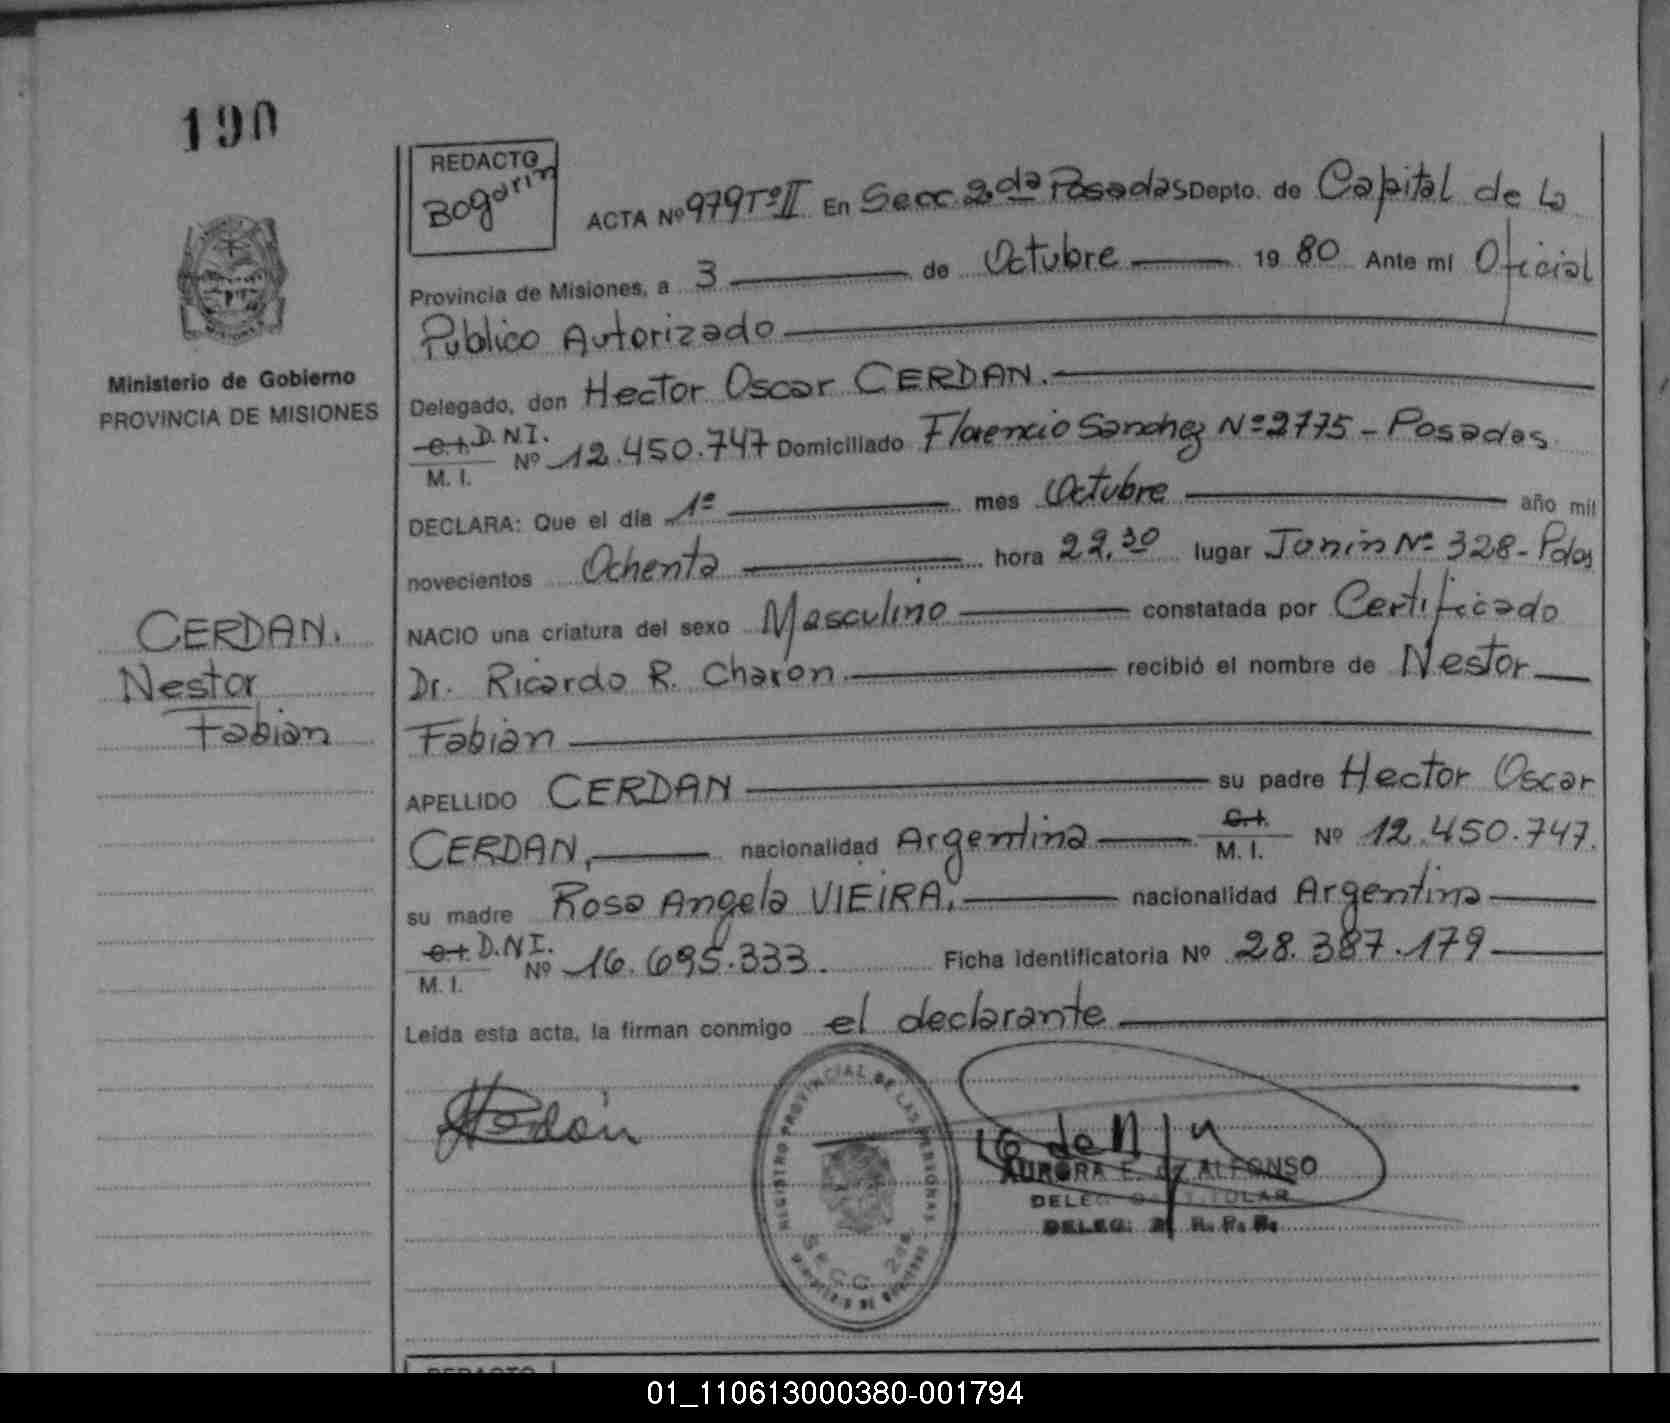 190
REDACTO
Bogarin
ACTA Nº 979 Tº II En Secc. 2da Posadas Depto. de Capital de la
Provincia de Misiones, a 3 de Octubre 19 80 Ante mi Oficial
Publico Autorizado
Ministerio de Gobierno
PROVINCIA DE MISIONES
Delegado, don Hector Oscar CERDAN.
C.I. D.N.I.
M. I. Nº 12.450.747 Domiciliado Florencio Sanchez Nº 2775 - Posadas
DECLARA: Que el día 1º mes Octubre año mil
novecientos Ochenta hora 22,30 lugar Junin Nº 328 - Pdas
NACIO una criatura del sexo Masculino constatada por Certificado
Dr. Ricardo R. Charon. recibió el nombre de Nestor
Fabian
CERDAN.
Nestor
Fabian
APELLIDO CERDAN su padre Hector Oscar
CERDAN, nacionalidad Argentina C.I. M. I. Nº 12.450.747.
su madre Rosa Angela VIEIRA. nacionalidad Argentina
C.I. D.N.I.
M. I. Nº 16.695.333. Ficha identificatoria Nº 28.387.179
Leida esta acta, la firman conmigo el declarante
REGISTRO PROVINCIAL DE LAS PERSONAS
SECC. 2da
MINISTERIO DE GOBIERNO
AURORA E. ALFONSO
DELEG. TITULAR
DELEG. 2 R. P. P.
REDACTO
01_110613000380-001794